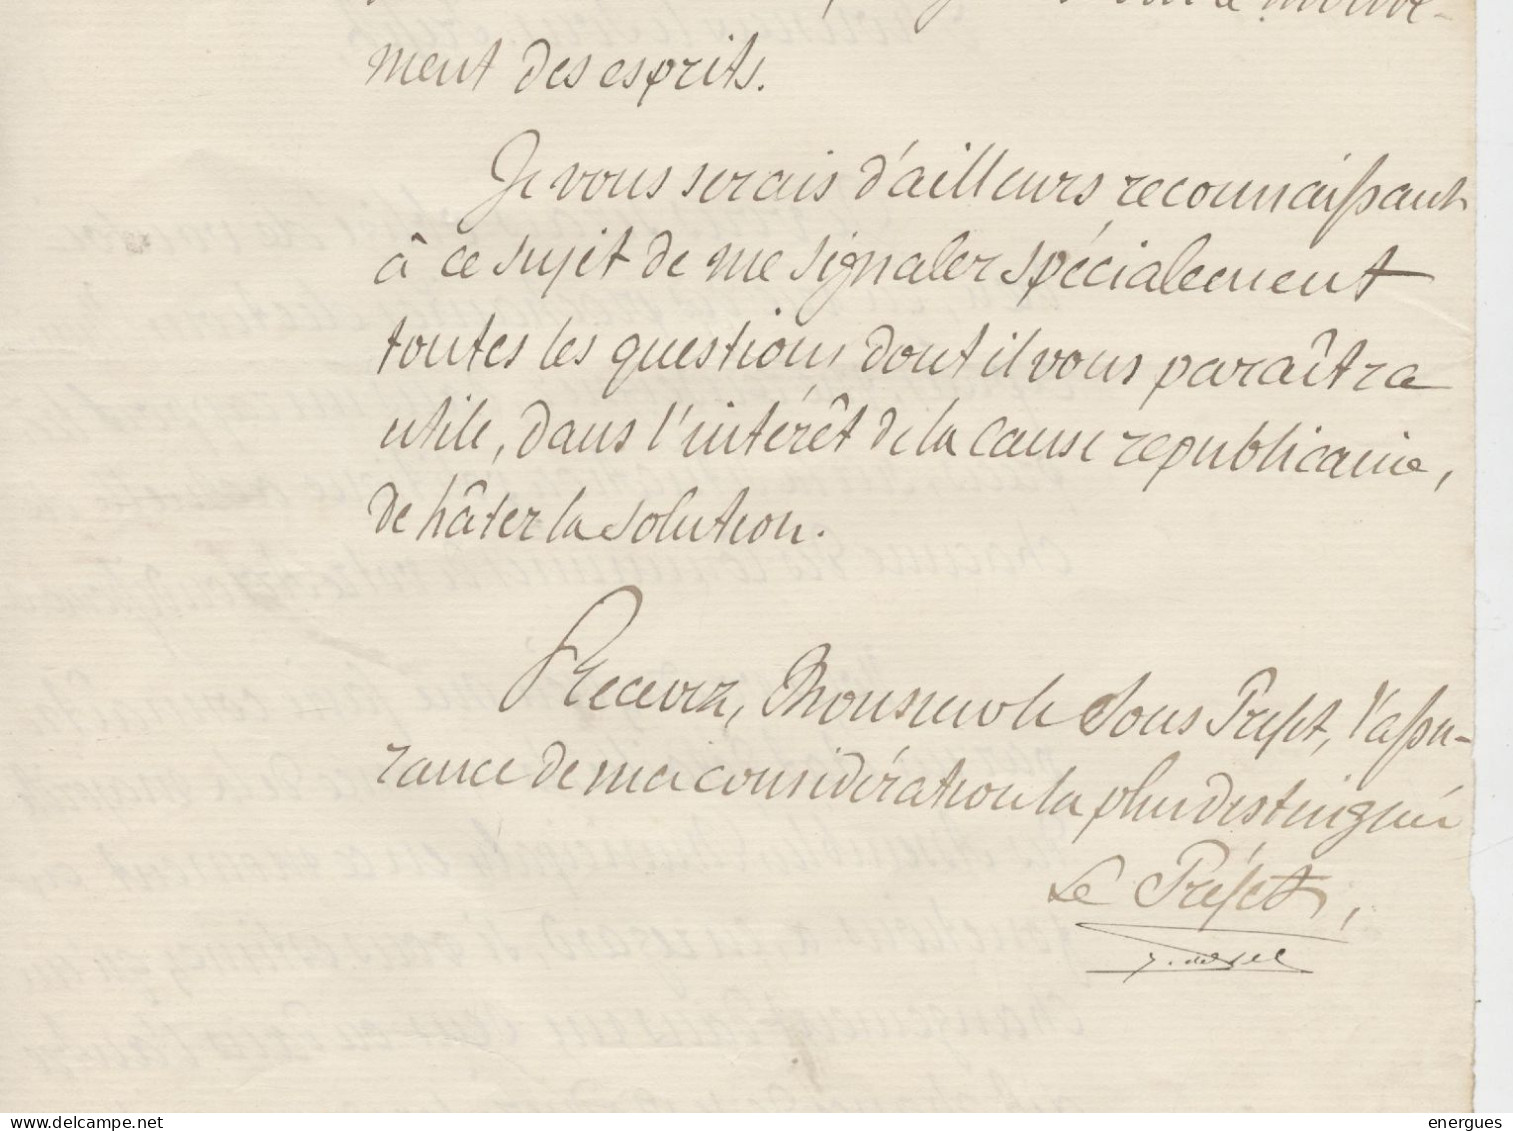 mouve-
ment des esprits.
Je vous serais d'ailleurs reconnaissant
à ce sujet de me signaler spécialement
toutes les questions dont il vous paraîtra
utile, dans l'intérêt de la cause républicaine,
de hâter la solution.
Recevez, Monsieur le Sous Préfet, l'assu-
rance de ma considération la plus distinguée
Le Préfet,
www.delcampe.net
energues